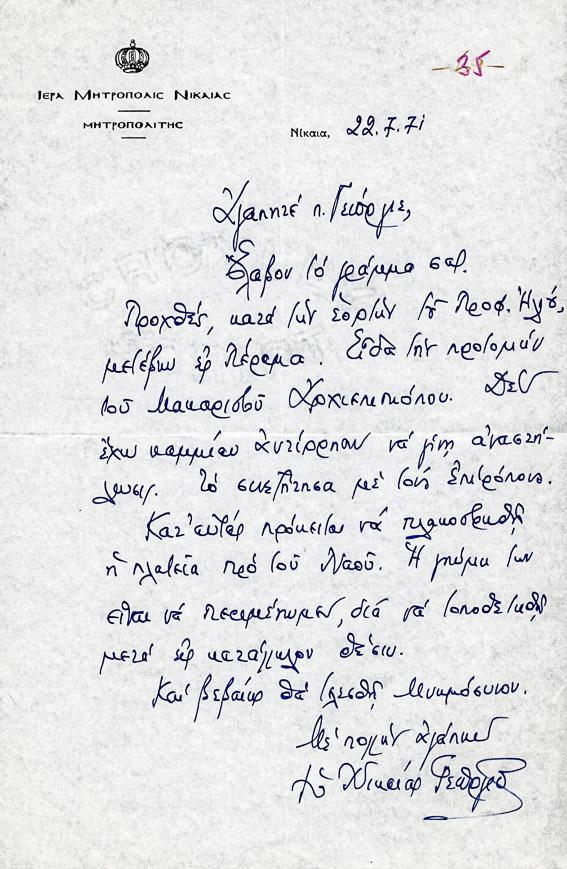 -35-
ΙΕΡΑ ΜΗΤΡΟΠΟΛΙΣ ΝΙΚΑΙΑΣ
ΜΗΤΡΟΠΟΛΙΤΗΣ
Νίκαια, 22.7.71
Ἀγαπητέ π. Γεώργιε,
Ἔλαβον τό γράμμα σας.
Προχθές, κατά τήν ἑορτήν τοῦ Προφ. Ἠλιού,
μετέβην εἰς Πέραμα. Εἶδα τήν προτομήν
τοῦ Μακαριστοῦ Ἀρχιεπισκόπου. Δέν
ἔχω καμμίαν ἀντίρρησιν νά γίνῃ ἀναστή-
λωσις. Τό συνεζήτησα μέ τούς ἐπιτρόπους.
Κατ' αὐτάς πρόκειται νά πλακοστρωθῇ
ἡ πλατεῖα πρό τοῦ Ναοῦ. Ἡ γνώμη των
εἶναι νά περιμένωμεν, διά νά τοποθετηθῇ
μετά εἰς κατάλληλον θέσιν.
Καί βεβαίως θά τελεσθῇ Μνημόσυνον.
Μέ πολλήν ἀγάπην
† Ὁ Νικαίας Γεώργιος